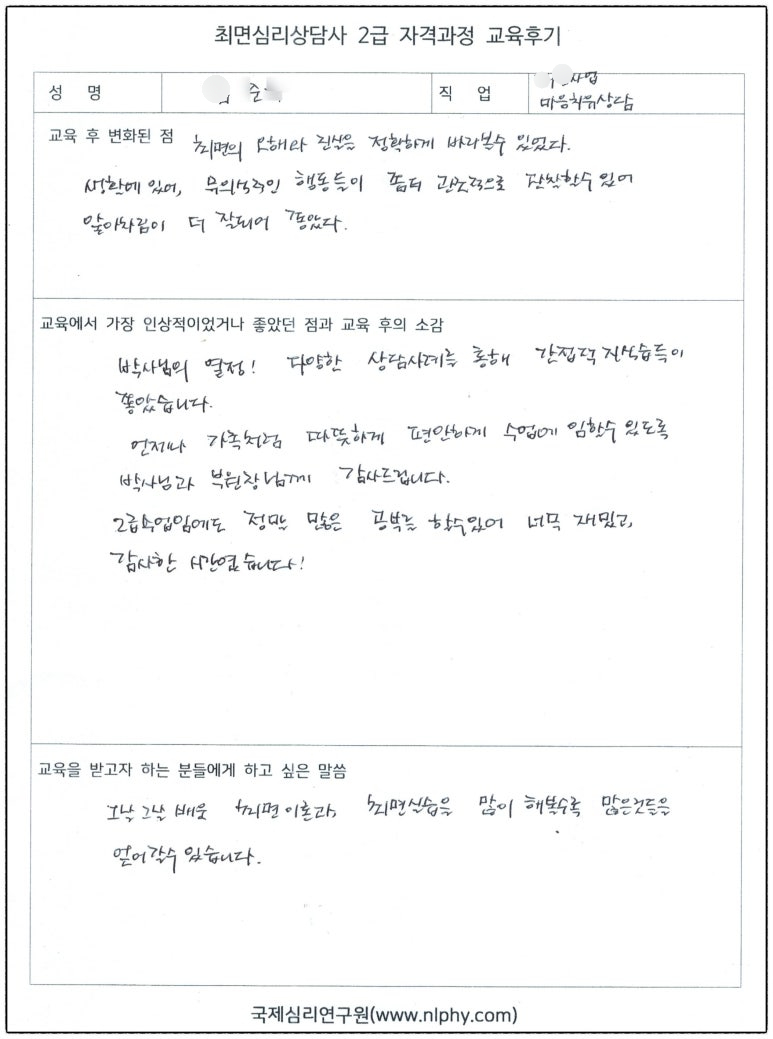 최면심리상담사 2급 자격과정 교육후기
성 명 준
직 업 사업
마음치유상담
교육 후 변화된 점 최면의 오해와 진실을 정확하게 바라볼수 있었다.
생활에 있어, 무의식적인 행동들이 좀더 관조적으로 관찰할수 있어
알아차림이 더 잘되어 좋았다.
교육에서 가장 인상적이었거나 좋았던 점과 교육 후의 소감
박사님의 열정! 다양한 상담사례를 통해 간접적 지식습득이
좋았습니다.
언제나 가족처럼 따뜻하게 편안하게 수업에 임할수 있도록
박사님과 부원장님께 감사드립니다.
2급수업임에도 정말 많은 공부를 할수있어 너무 재밌고,
감사한 시간였습니다!
교육을 받고자 하는 분들에게 하고 싶은 말씀
그날 그날 배운 최면이론과, 최면실습을 많이 해볼수록 많은것들을
얻어갈수 있습니다.
국제심리연구원(www.nlphy.com)